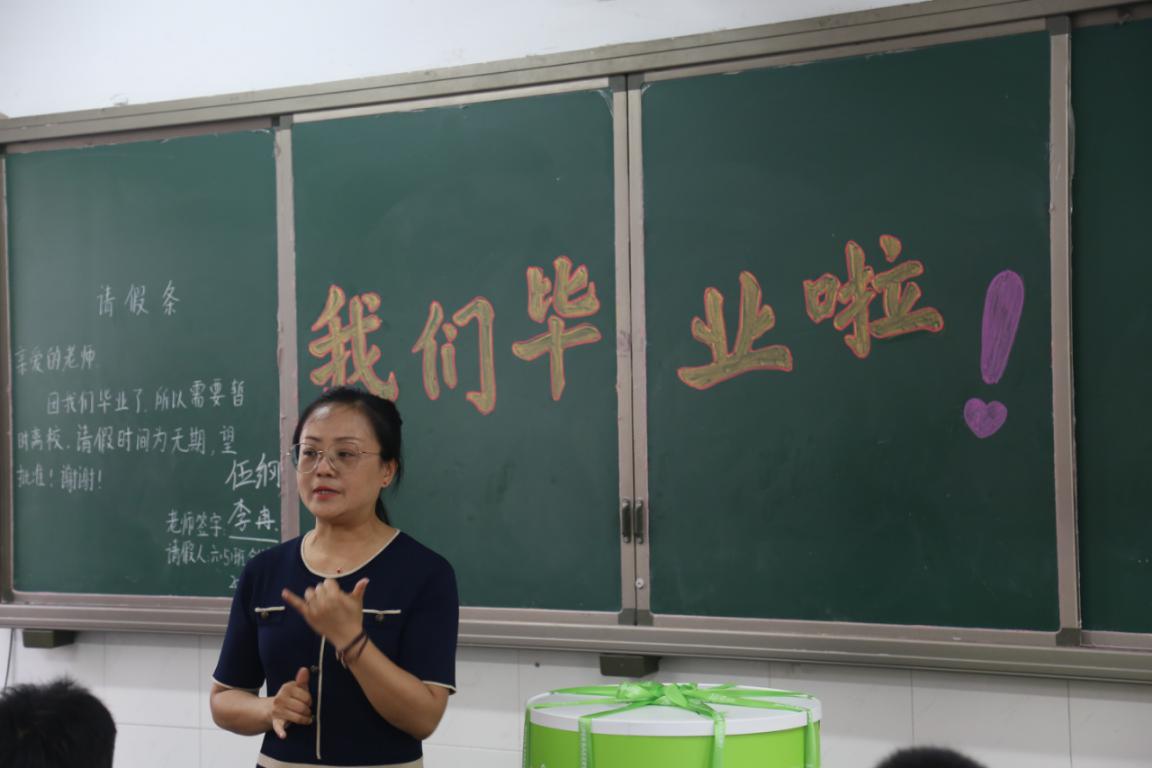 请假条
亲爱的老师.
因我们毕业了,所以需要暂
时离校.请假时间为无期,望
批准!谢谢!
伍纲
老师签字:李冉.
请假人:六(5)班
我们毕业啦!